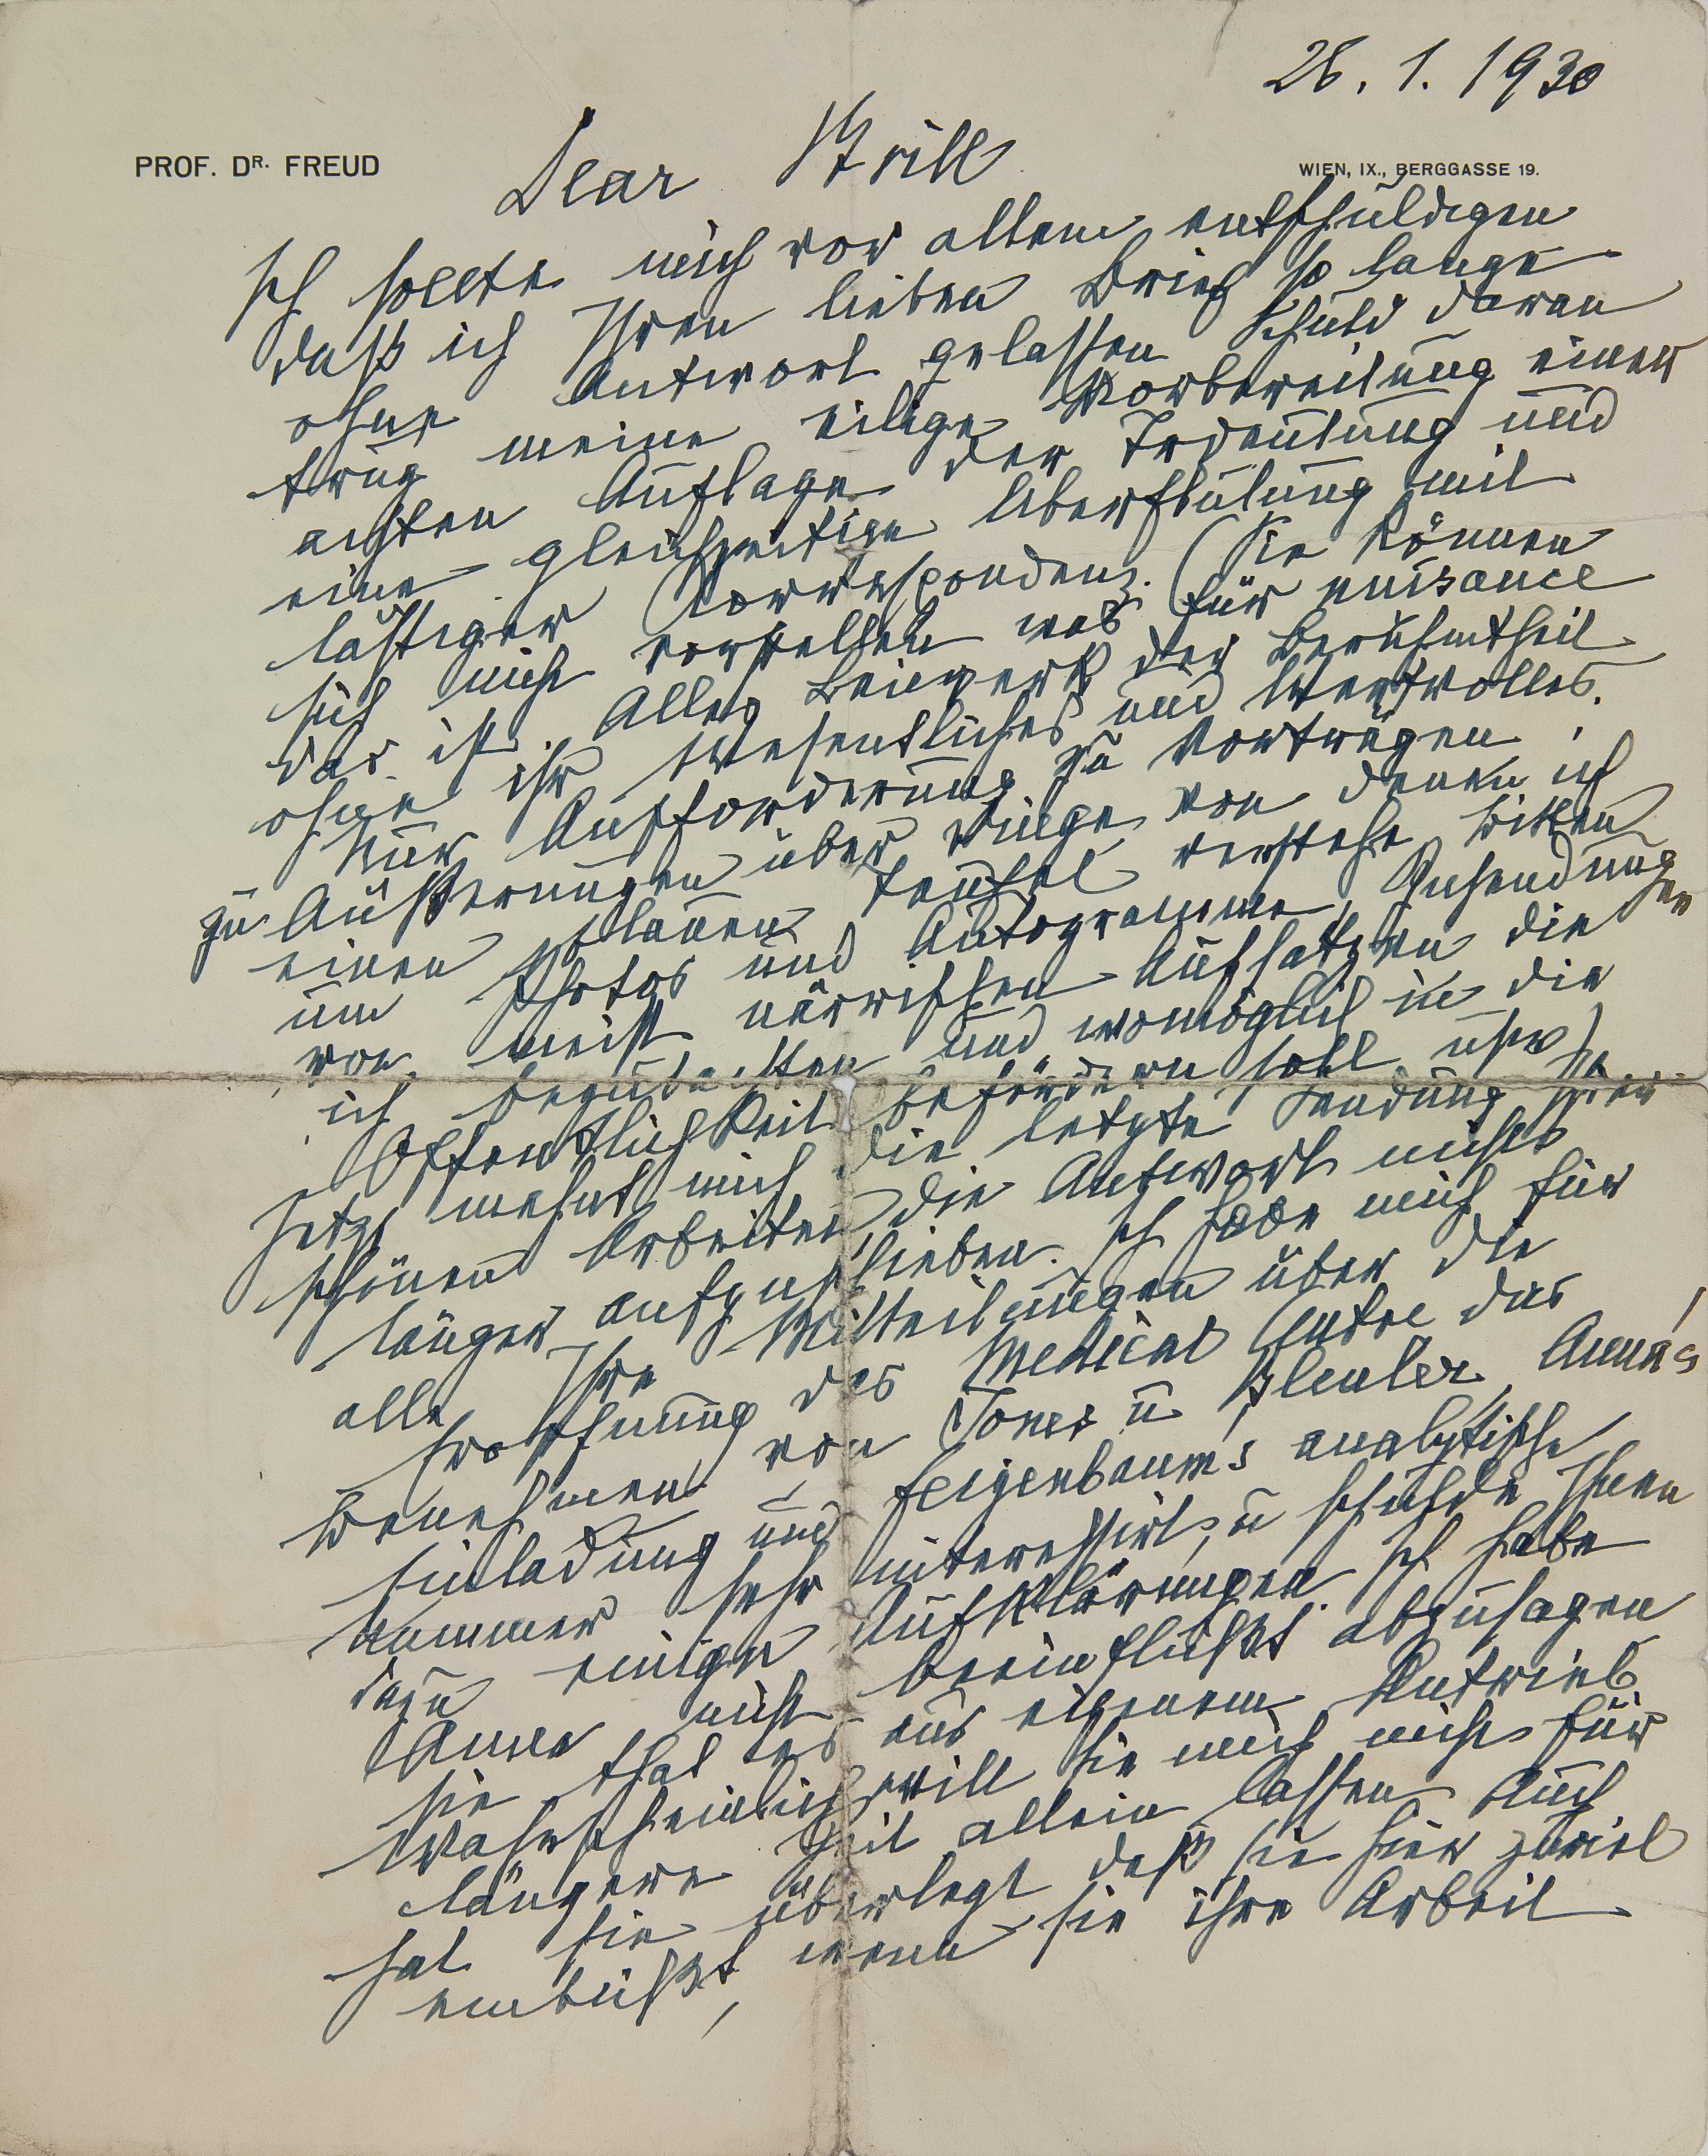 28. 1. 1930
PROF. DR. FREUD
WIEN, IX., BERGGASSE 19.
Dear Brill
Ich sollte mich vor allem entschuldigen
daß ich Ihren lieben Brief so lange
ohne Antwort gelassen Schuld daran
trug meine eilige Vorbereitung einer
achten Auflage der Trdeutung und
eine gleichzeitige Überflutung mit
lästiger Correspondenz. (Sie können
sich nicht vorstellen was für nuisance
das ist. Alles Beiwerk der Berühmtheit
ohne ihr Wesentliches und Wertvolles.
Nur Aufforderung zu Vorträgen,
zu Äußerungen über Dinge von denen ich
einen blauen Teufel verstehe, Bitten
um Photos und Autogramme, Zusendungen
von meist närrischen Aufsätzen die
ich begutachten und womöglich in die
Öffentlichkeit befördern soll usw)
Jetzt mahnt mich die letzte Sendung Ihrer
schönen Arbeiten, die Antwort nicht
länger aufzuschieben. Ich habe mich für
alle Ihre Mitteilungen über die
Eröffnung des Medical Centre das
Benehmen von Jones u Bleuler, Anna's
Einladung und Feigenbaum's analytische
Nummer sehr interessirt, u schulde Ihnen
dazu einige Aufklärungen. Ich habe
Anna nicht beeinflußt abzusagen
sie that es aus eigenem Antrieb
Wahrscheinlich will sie mich nicht für
längere Zeit allein lassen Auch
hat sie überlegt daß sie hier zuviel
einbüßt, wenn sie ihre Arbeit